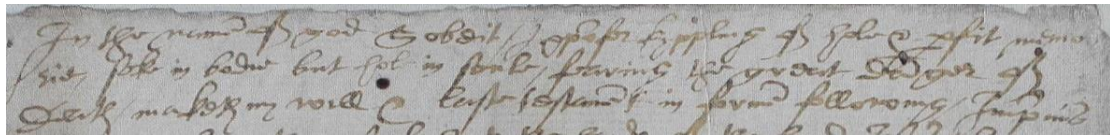 In the name of god So be it / I kyppling of hole & pfit memo
rie, seke in bodie but hol in sowle / fearing the great danger of
Death, make my will & laste testament in forme following / Imprimis